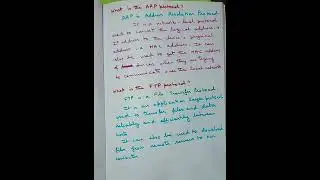 What is the ARP protocol?
ARP is Address Resolution Protocol
It is a network-level protocol
used to convert the logical address i.e
IP address to the device's physical
address i.e MAC address. It can
also be used to get the MAC address
of devices when they are trying
to communicate over the local network
What is the FTP protocol?
FTP is a File Transfer Protocol.
It is an application layer protocol
used to transfer files and data
reliably and efficiently between
hosts
It can also be used to download
files from remote servers to our
computer